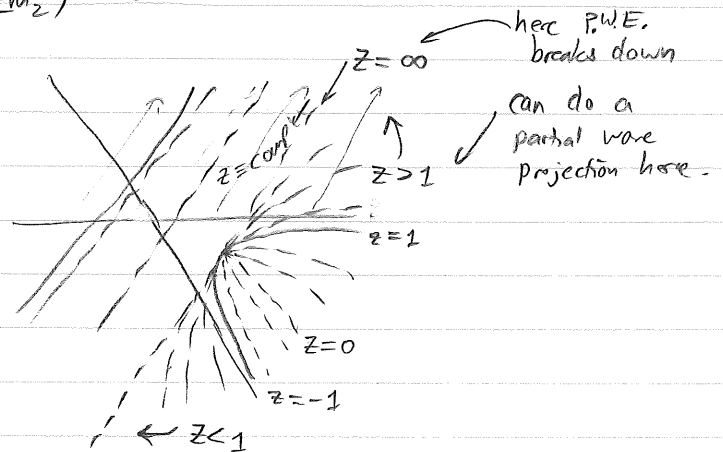 m₂)
here P.W.E.
breaks down
z = ∞
can do a
partial wave
projection here.
z = comp
z > 1
z = 1
z = 0
z = -1
← z < 1